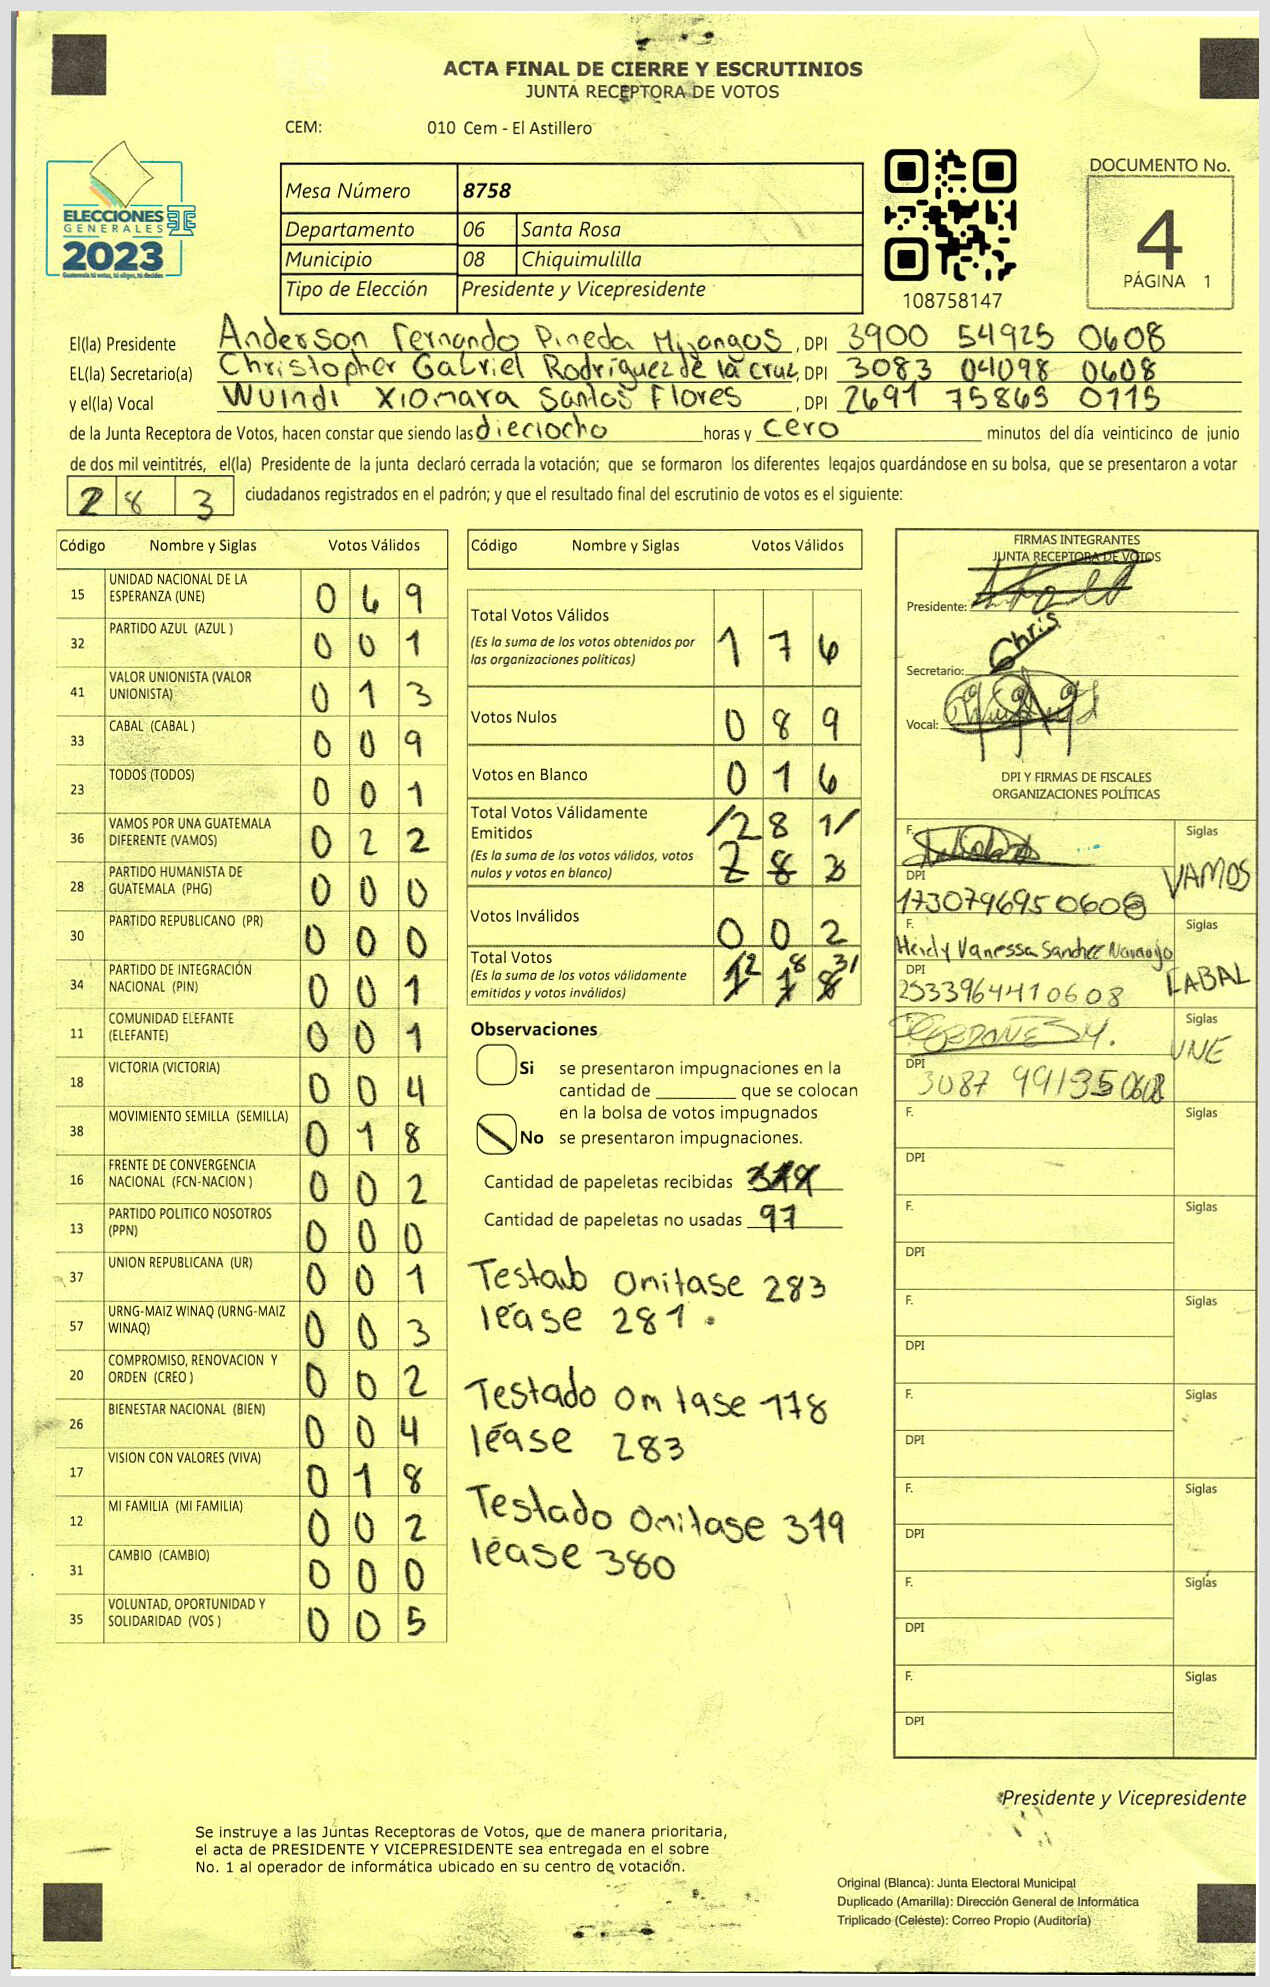 ACTA FINAL DE CIERRE Y ESCRUTINIOS
JUNTA RECEPTORA DE VOTOS
CEM: 010 Cem - El Astillero
ELECCIONES
GENERALES
2023
Guatemala tú votas, tú eliges, tú decides
Mesa Número 8758
Departamento 06 Santa Rosa
Municipio 08 Chiquimulilla
Tipo de Elección Presidente y Vicepresidente
108758147
DOCUMENTO No.
4
PÁGINA 1
El(la) Presidente Anderson Fernando Pineda Mijangos, DPI 3900 54925 0608
EL(la) Secretario(a) Christopher Gabriel Rodríguez de la cruz, DPI 3083 04098 0608
y el(la) Vocal Wuindi Xiomara Santos Flores, DPI 2691 75865 0115
de la Junta Receptora de Votos, hacen constar que siendo las dieciocho horas y cero minutos del día veinticinco de junio
de dos mil veintitrés, el(la) Presidente de la junta declaró cerrada la votación; que se formaron los diferentes legajos guardándose en su bolsa, que se presentaron a votar
283 ciudadanos registrados en el padrón; y que el resultado final del escrutinio de votos es el siguiente:
Código Nombre y Siglas Votos Válidos
15 UNIDAD NACIONAL DE LA ESPERANZA (UNE) 0 6 9
32 PARTIDO AZUL (AZUL ) 0 0 1
41 VALOR UNIONISTA (VALOR UNIONISTA) 0 1 3
33 CABAL (CABAL ) 0 0 9
23 TODOS (TODOS) 0 0 1
36 VAMOS POR UNA GUATEMALA DIFERENTE (VAMOS) 0 2 2
28 PARTIDO HUMANISTA DE GUATEMALA (PHG) 0 0 0
30 PARTIDO REPUBLICANO (PR) 0 0 0
34 PARTIDO DE INTEGRACIÓN NACIONAL (PIN) 0 0 1
11 COMUNIDAD ELEFANTE (ELEFANTE) 0 0 1
18 VICTORIA (VICTORIA) 0 0 4
38 MOVIMIENTO SEMILLA (SEMILLA) 0 1 8
16 FRENTE DE CONVERGENCIA NACIONAL (FCN-NACION ) 0 0 2
13 PARTIDO POLITICO NOSOTROS (PPN) 0 0 0
37 UNION REPUBLICANA (UR) 0 0 1
57 URNG-MAIZ WINAQ (URNG-MAIZ WINAQ) 0 0 3
20 COMPROMISO, RENOVACION Y ORDEN (CREO ) 0 0 2
26 BIENESTAR NACIONAL (BIEN) 0 0 4
17 VISION CON VALORES (VIVA) 0 1 8
12 MI FAMILIA (MI FAMILIA) 0 0 2
31 CAMBIO (CAMBIO) 0 0 0
35 VOLUNTAD, OPORTUNIDAD Y SOLIDARIDAD (VOS ) 0 0 5
Código Nombre y Siglas Votos Válidos
Total Votos Válidos 1 7 6
(Es la suma de los votos obtenidos por
las organizaciones políticas)
Votos Nulos 0 8 9
Votos en Blanco 0 1 6
Total Votos Válidamente Emitidos /2 8 1/
(Es la suma de los votos válidos, votos
nulos y votos en blanco) 2 8 3
Votos Inválidos 0 0 2
Total Votos 2 8 3/
(Es la suma de los votos válidamente
emitidos y votos inválidos) 1 7 8
Observaciones
Si se presentaron impugnaciones en la
cantidad de ________ que se colocan
en la bolsa de votos impugnados
No se presentaron impugnaciones.
Cantidad de papeletas recibidas 379
Cantidad de papeletas no usadas 97
Testado Omitase 283
léase 281.
Testado Omitase 178
léase 283
Testado Omitase 379
léase 380
FIRMAS INTEGRANTES
JUNTA RECEPTORA DE VOTOS
Presidente:
Secretario: Chris
Vocal:
DPI Y FIRMAS DE FISCALES
ORGANIZACIONES POLÍTICAS
F. Siglas
DPI VAMOS
1730796950608
F. Siglas
Heidy Vanessa Sanchez Naranjo
DPI CABAL
2533964410608
F. Siglas
UNE
DPI 3087 99135 0608
F. Siglas
DPI
F. Siglas
DPI
F. Siglas
DPI
F. Siglas
DPI
F. Siglas
DPI
F. Siglas
DPI
F. Siglas
DPI
Presidente y Vicepresidente
Se instruye a las Juntas Receptoras de Votos, que de manera prioritaria,
el acta de PRESIDENTE Y VICEPRESIDENTE sea entregada en el sobre
No. 1 al operador de informática ubicado en su centro de votación.
Original (Blanca): Junta Electoral Municipal
Duplicado (Amarilla): Dirección General de Informática
Triplicado (Celeste): Correo Propio (Auditoría)